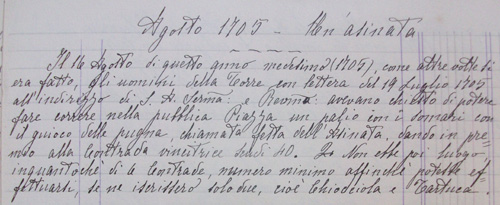 Agosto 1705 - Un'asinata
Il 16 Agosto di questo anno medesimo (1705), come altre volte si
era fatto, gli uomini della Torre con lettera del 19 Luglio 1705
all'indirizzo di S. A. Serma: e Revma: avevano chiesto di potere
fare correre nella pubblica Piazza un palio con i somari con
il giuoco delle pugna, chiamata festa dell'Asinata, dando in pre
mio alla Contrada vincitrice scudi 40. Non ebbe poi luogo
inquantoche di 6 Contrade, numero minimo affinchè potesse ef
fettuarsi, se ne iscrissero solo due, cioè Chiocciola e Tartuca.